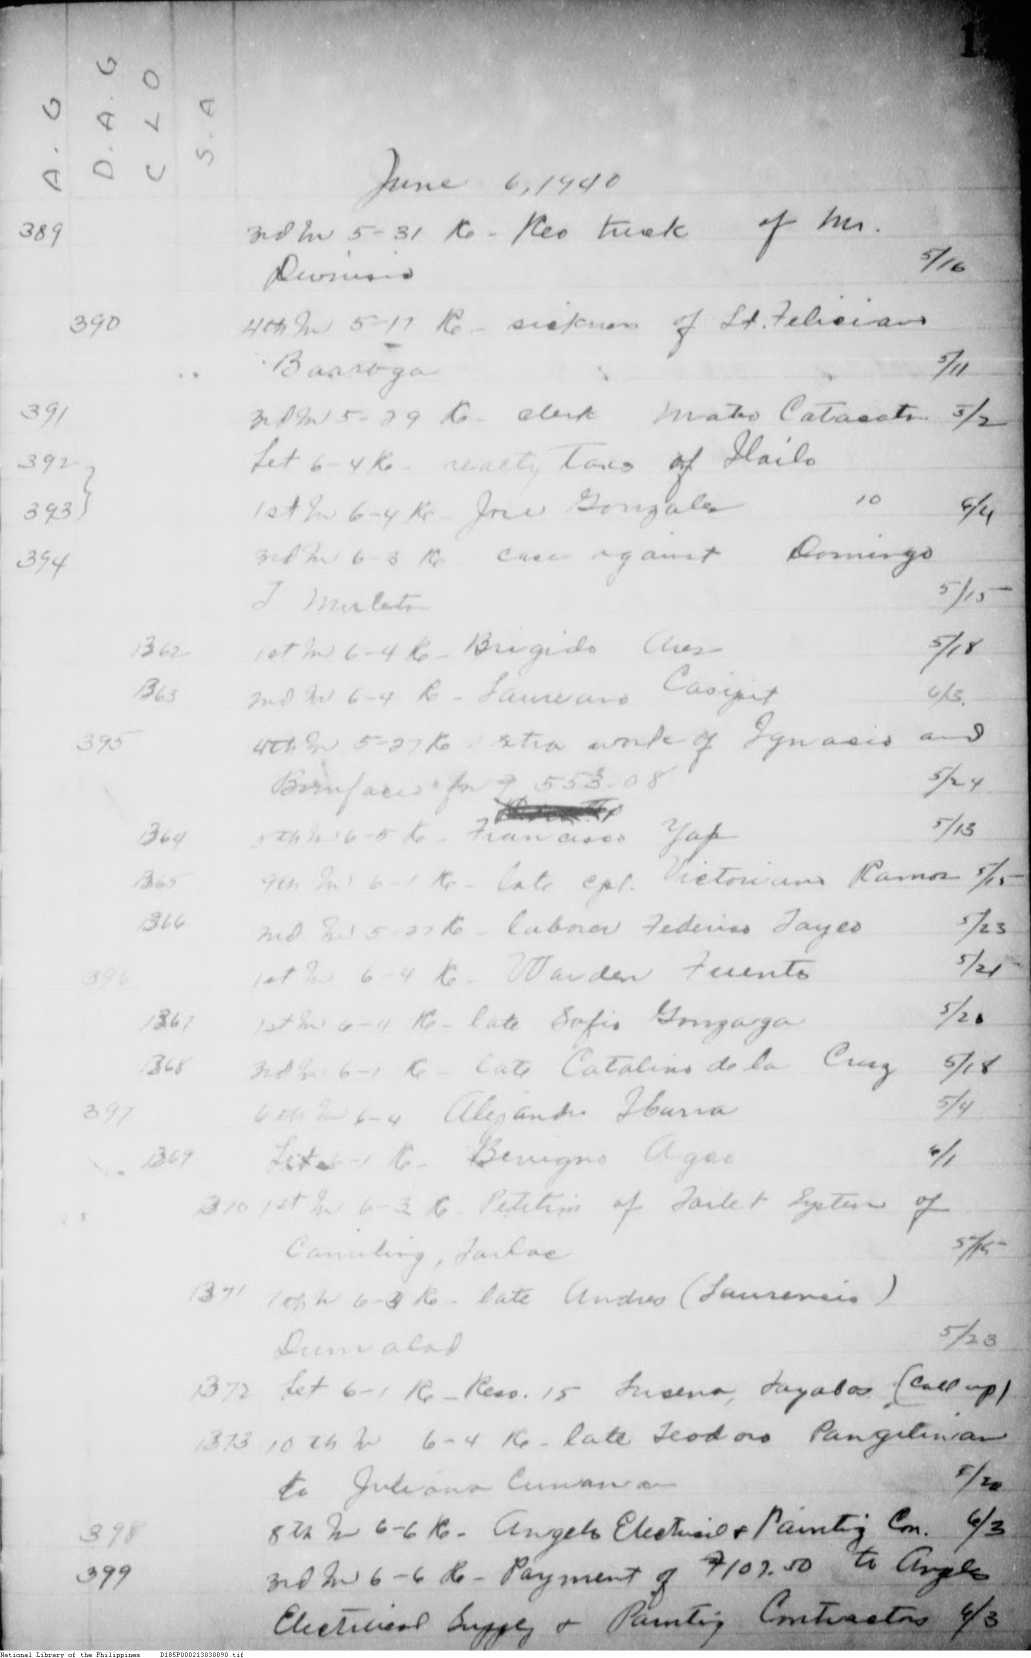 1
A.G D.A.G C L O S.A
June 6, 1940
389 3rd In 5-31 Re - Reo truck of Mr.
Dionisio 5/16
390 4th In 5-17 Re - sickness of Lt. Feliciano
Baaroga 5/11
391 3rd In 5-29 Re - clerk Mateo Catacutan 5/2
392 Let 6-4 Re - realty taxes of Iloilo
393 1st In 6-4 Re - Jose Gonzales 10 6/4
394 3rd In 6-3 Re case against Domingo
T 5/15
1362 1st In 6-4 Re - Brigido Ares 5/18
1363 2nd In 6-4 Re - Laureano Casipit 6/3
395 4th In 5-27 Re extra work of Ignacio and
Bonifacio for ₱ 553.08 5/24
1364 5th In 6-5 Re - Francisco Yap 5/13
1365 9th In 6-1 Re - late cpl. Victoriano Ramos 5/15
1366 2nd In 5-27 Re - laborer Federico Tayco 5/23
396 1st In 6-4 Re - Warden Fuentes 5/21
1367 1st In 6-4 Re - late Sofio Gonzaga 5/20
1368 3rd In 6-1 Re - late Catalino de la Cruz 5/18
397 6th In 6-4 Alejandro Ibarra 5/4
1369 Let 6-1 Re - Benigno Agao 6/1
1370 1st In 6-3 Re - Petition of Toilet System of
Camiling, Tarlac 5/15
1371 7th In 6-3 Re - late Andres (Laurencio)
Dumalod 5/23
1372 Let 6-1 Re - Reso. 15 Lucena, Tayabas (call up)
1373 10th In 6-4 Re - late Teodoro Pangilinan
to Juliana Cunanan 5/20
398 8th In 6-6 Re - Angeles Electrical & Painting Con. 6/3
399 3rd In 6-6 Re - Payment of ₱107.50 to Angeles
Electrical Supply & Painting Contractors 6/3
National Library of the Philippines D185P000213838890.tif